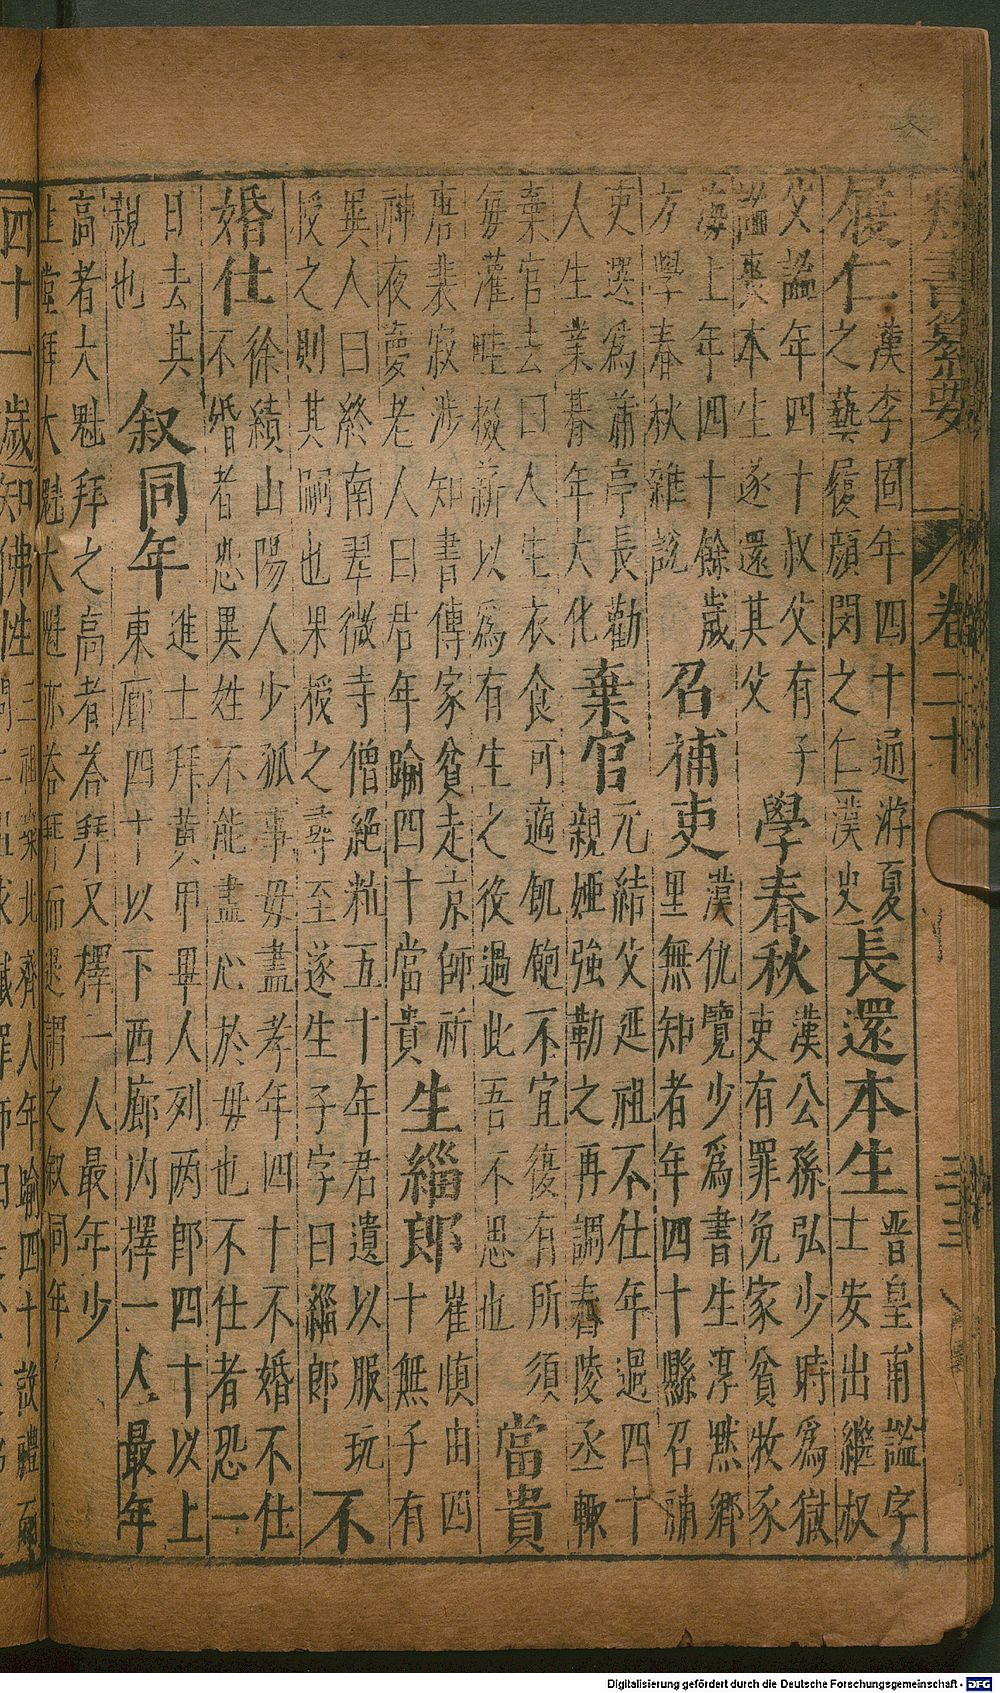 類書纂要 卷二十 三三
履仁
漢李固年四十通游夏
之藝履顏閔之仁 漢史
長還本生
晉皇甫謐字
士安出繼叔
父謐年四十叔父有子
謐喪本生遂還其父
學春秋
漢公孫弘少時為獄
吏有罪免家貧牧豕
海上年四十餘歲
方學春秋雜說
召補吏
漢仇覽少為書生淳默鄉
里無知者年四十縣召補
吏選為蒲亭長勸
人生業暮年大化
棄官
元結父延祖不仕年過四十
親婭強勸之再調舂陵丞輒
棄官去曰人生衣食可適飢飽不宜復有所須
每灌畦掇薪以為有生之役過此吾不思也
當貴
唐裴寂涉知書傳家貧走京師祈
神夜夢老人曰君年踰四十當貴
生緇郎
崔慎由四
十無子有
異人曰終南翠微寺僧絕粒五十年君遺以服玩
授之則其嗣也果授之尋至遂生子字曰緇郎
不
婚仕
徐績山陽人少孤事毋盡孝年四十不婚不仕
不婚者恐異姓不能盡心於毋也不仕者恐一
日去其
親也
叙同年
進士拜黃甲畢人列两郎四十以上
東廊四十以下西廊內擇一人最年
高者大魁拜之高者荅拜又擇一人最年少
堂拜大魁大魁亦荅拜而退謂之叙同年
四十一歲知佛性
三祖 北齊人年踰四十 禮
Digitalisierung gefördert durch die Deutsche Forschungsgemeinschaft - DFG